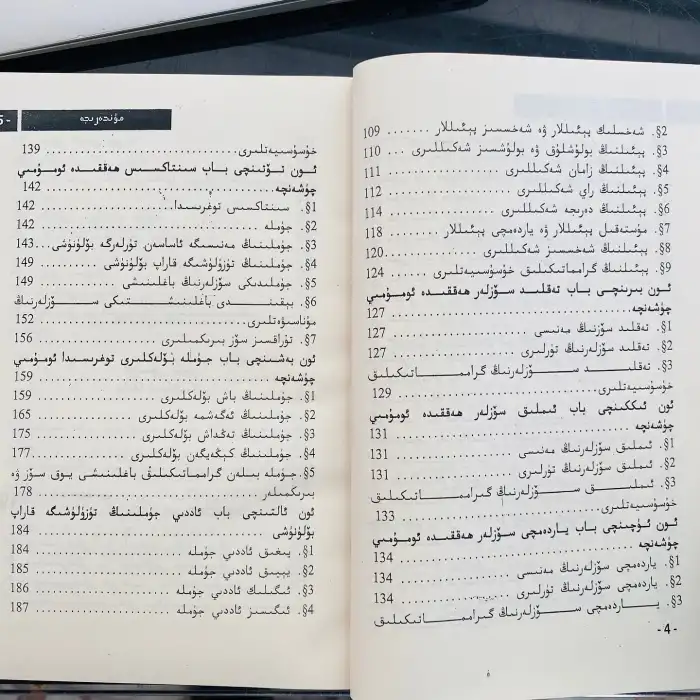 2§. شەخسلىك پېئىللار ۋە شەخسسىز پېئىللار ....... 109
3§. پېئىلنىڭ بولۇشلۇق ۋە بولۇشسىز شەكىللىرى 110
4§. پېئىلنىڭ زامان شەكىللىرى ................ 111
5§. پېئىلنىڭ راي شەكىللىرى ................ 112
6§. پېئىلنىڭ دەرىجە شەكىللىرى .............. 114
7§. مۇستەقىل پېئىللار ۋە ياردەمچى پېئىللار ..... 118
8§. پېئىلنىڭ شەخسسىز شەكىللىرى ............ 120
9§. پېئىلنىڭ گرامماتىكىلىق خۇسۇسىيەتلىرى ..... 124
ئون بىرىنچى باب تەقلىد سۆزلەر ھەققىدە ئومۇمىي
چۈشەنچە ................................. 127
1§. تەقلىد سۆزنىڭ مەنىسى .................. 127
2§. تەقلىد سۆزلەرنىڭ تۈرلىرى ............... 127
3§. تەقلىد سۆزلەرنىڭ گرامماتىكىلىق
خۇسۇسىيەتلىرى ........................... 129
ئون ئىككىنچى باب ئىملىق سۆزلەر ھەققىدە ئومۇمىي
چۈشەنچە ................................. 131
1§. ئىملىق سۆزلەرنىڭ مەنىسى ............... 131
2§. ئىملىق سۆزلەرنىڭ تۈرلىرى ............... 131
3§. ئىملىق سۆزلەرنىڭ گرامماتىكىلىق
خۇسۇسىيەتلىرى ........................... 133
ئون ئۈچىنچى باب ياردەمچى سۆزلەر ھەققىدە ئومۇمىي
چۈشەنچە ................................. 134
1§. ياردەمچى سۆزلەرنىڭ مەنىسى ............. 134
2§. ياردەمچى سۆزلەرنىڭ تۈرلىرى ............. 134
3§. ياردەمچى سۆزلەرنىڭ گرامماتىكىلىق
-4-
مۇندەرىجە
5-
خۇسۇسىيەتلىرى ........................... 139
ئون تۆتىنچى باب سىنتاكسىس ھەققىدە ئومۇمىي
چۈشەنچە ................................. 142
1§. سىنتاكسىس توغرىسىدا .................. 142
2§. جۈملە ................................ 142
3§. جۈملىنىڭ مەنىسىگە ئاساسەن تۈرلەرگە بۆلۈنۈشى ... 143
4§. جۈملىنىڭ تۈزۈلۈشىگە قاراپ بۆلۈنۈشى ...... 149
5§. جۈملىدىكى سۆزلەرنىڭ باغلىنىشى .......... 149
6§. بېقىندى باغلىنىشتىكى سۆزلەرنىڭ
مۇناسىۋەتلىرى ............................ 152
7§. تۇراقسىز سۆز بىرىكمىلىرى ............... 156
ئون بەشىنچى باب جۈملە بۆلەكلىرى توغرىسىدا ئومۇمىي
چۈشەنچە ................................. 159
1§. جۈملىنىڭ باش بۆلەكلىرى ................ 159
2§. جۈملىنىڭ ئەگەشمە بۆلەكلىرى ............ 165
3§. جۈملىنىڭ تەڭداش بۆلەكلىرى ............. 175
4§. جۈملىنىڭ كېڭەيگەن بۆلەكلىرى ........... 177
5§. جۈملە بىلەن گرامماتىكىلىق باغلىنىشى يوق سۆز ۋە
بىرىكمىلەر ............................... 178
ئون ئالتىنچى باب ئاددىي جۈملىنىڭ تۈزۈلۈشىگە قاراپ
بۆلۈنۈشى ................................ 184
1§. يىغىق ئاددىي جۈملە .................... 184
2§. يېيىق ئاددىي جۈملە .................... 185
3§. ئىگىلىك ئاددىي جۈملە .................. 186
4§. ئىگىسىز ئاددىي جۈملە .................. 187